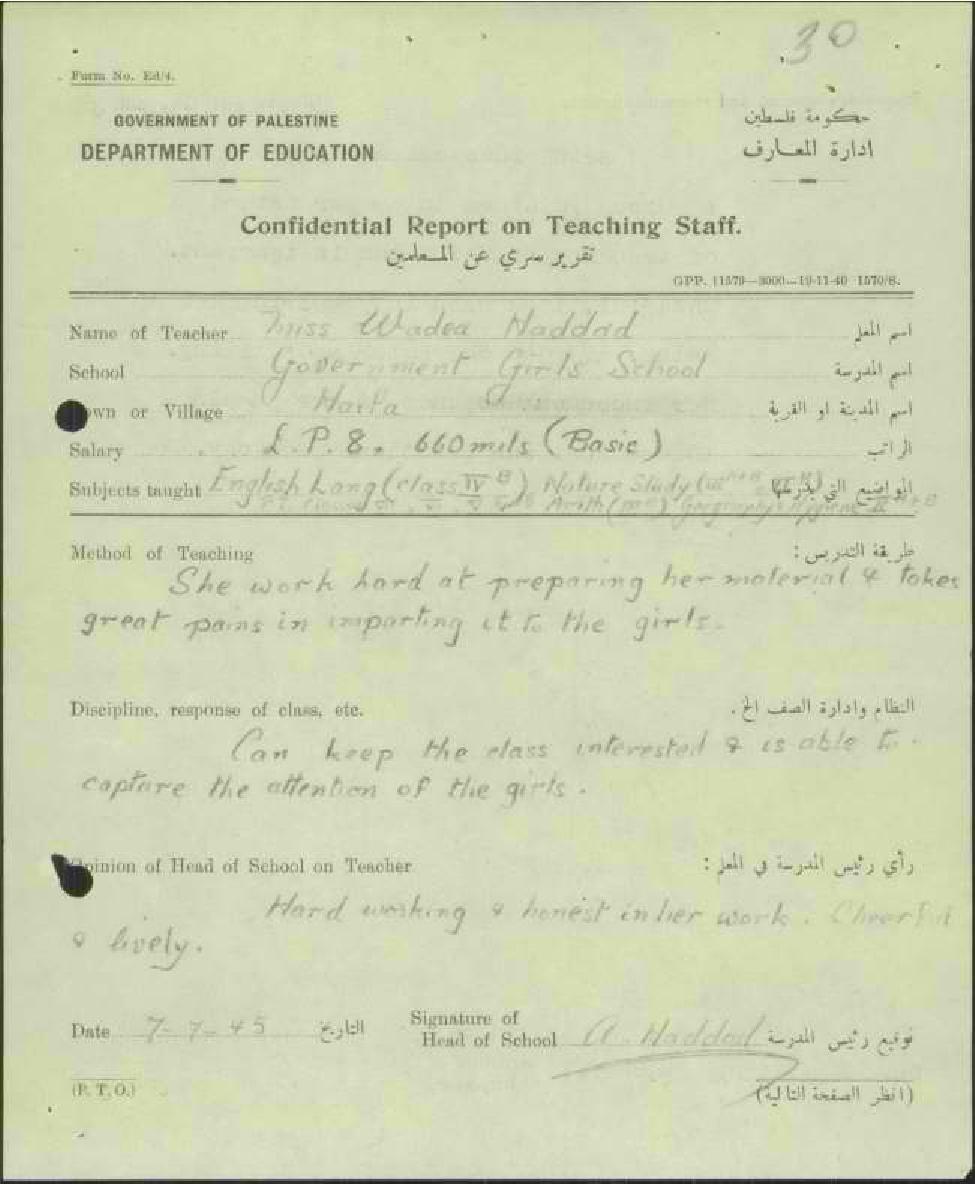 30
Form No. Ed/4.
GOVERNMENT OF PALESTINE
حكومة فلسطين
DEPARTMENT OF EDUCATION
ادارة المعارف
Confidential Report on Teaching Staff.
تقرير سري عن المعلمين
GPP. 11579—3000—19-11-40 1570/S.
Name of Teacher Miss Wadea Haddad اسم المعلم
School Government Girls School اسم المدرسة
own or Village Haifa اسم المدينة او القرية
Salary £.P.8. 660 mils (Basic) الراتب
Subjects taught English Lang (class IV B) Nature Study (III A+B المواضيع التي يدرسها
Arith ( Geography Hygiene
Method of Teaching طريقة التدريس :
She work hard at preparing her material & takes
great pains in imparting it to the girls.
Discipline, response of class, etc. النظام وادارة الصف الخ .
Can keep the class interested & is able to
capture the attention of the girls.
pinion of Head of School on Teacher رأي رئيس المدرسة في المعلم :
Hard working & honest in her work. Cheerful
& lively.
Date 7-7-45 التاريخ
Signature of
Head of School A. Haddad توقيع رئيس المدرسة
(P. T. O.) (انظر الصفحة التالية)